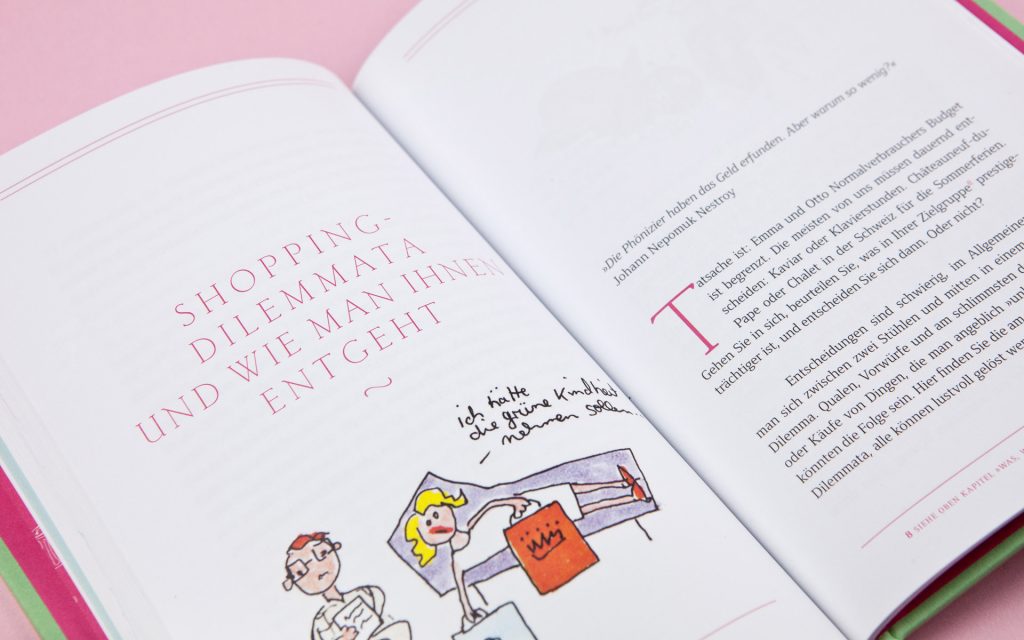 SHOPPING-
DILEMMATA
UND WIE MAN IHNEN
ENTGEHT
~
ich hätte
die grüne
nehmen sollen.
»Die Phönizier haben das Geld erfunden. Aber warum so wenig?«
Johann Nepomuk Nestroy
Tatsache ist: Emma und Otto Normalverbrauchers Budget
ist begrenzt. Die meisten von uns müssen dauernd ent-
scheiden: Kaviar oder Klavierstunden. Châteauneuf-du-
Pape oder Chalet in der Schweiz für die Sommerferien.
Gehen Sie in sich, beurteilen Sie, was in Ihrer Zielgruppe⁸ prestige-
trächtiger ist, und entscheiden Sie sich dann. Oder nicht?
Entscheidungen sind schwierig, im Allgemeinen
man sich zwischen zwei Stühlen und mitten in einem
Dilemma. Qualen, Vorwürfe und am schlimmsten
oder Käufe von Dingen, die man angeblich
könnten die Folge sein. Hier finden Sie die am
Dilemmata, alle können lustvoll gelöst
8 SIEHE OBEN KAPITEL »WAS,